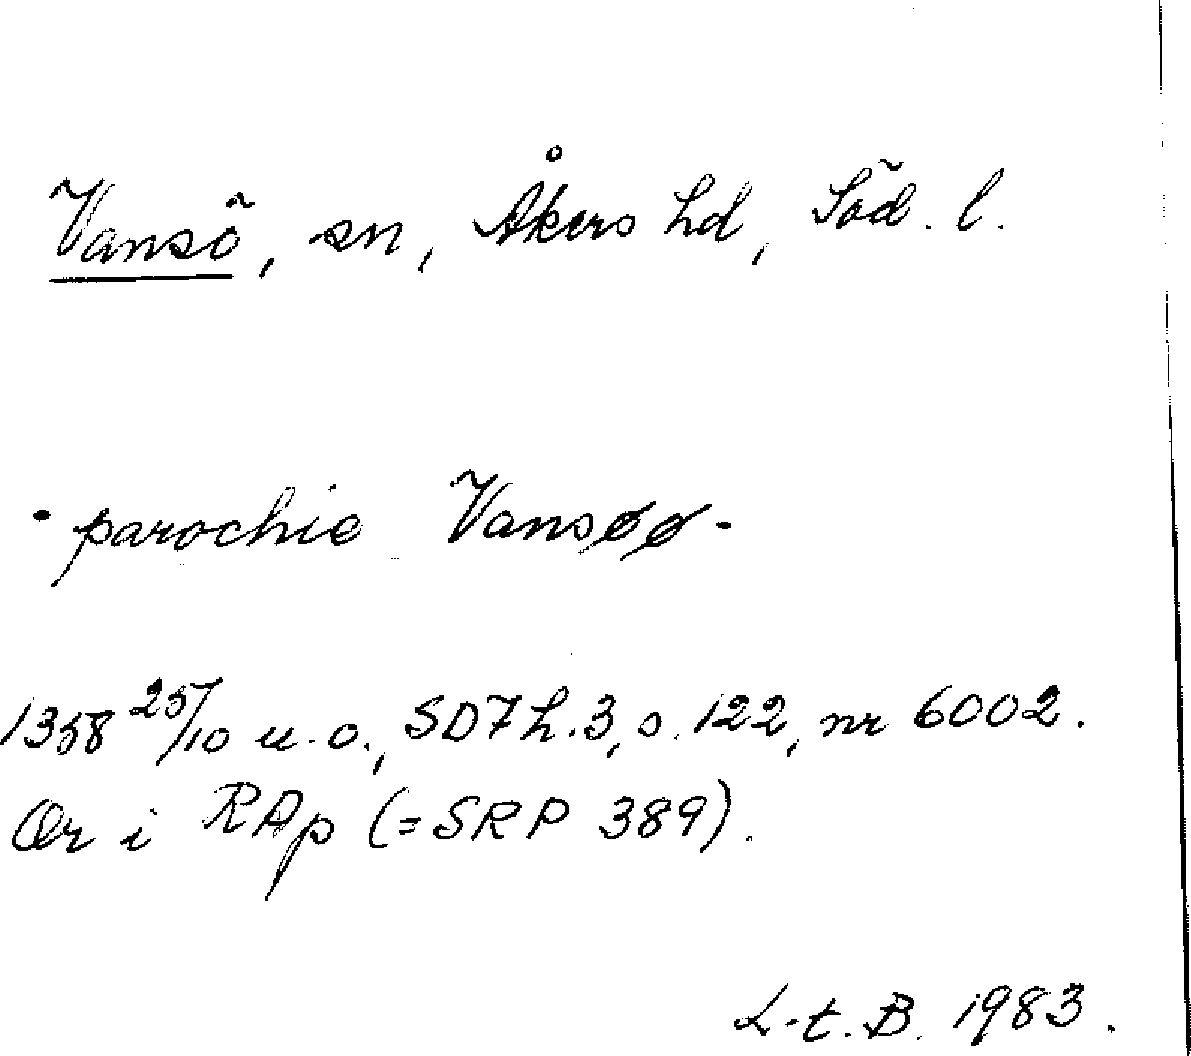 Vansö, sn, Åkers hd, Söd. l.
· parochie Vansøø -
1358 25/10 u.o., SD7 h.3, s. 122, nr 6002.
Or i RAp (= SRP 389).
L-t. B. 1983.